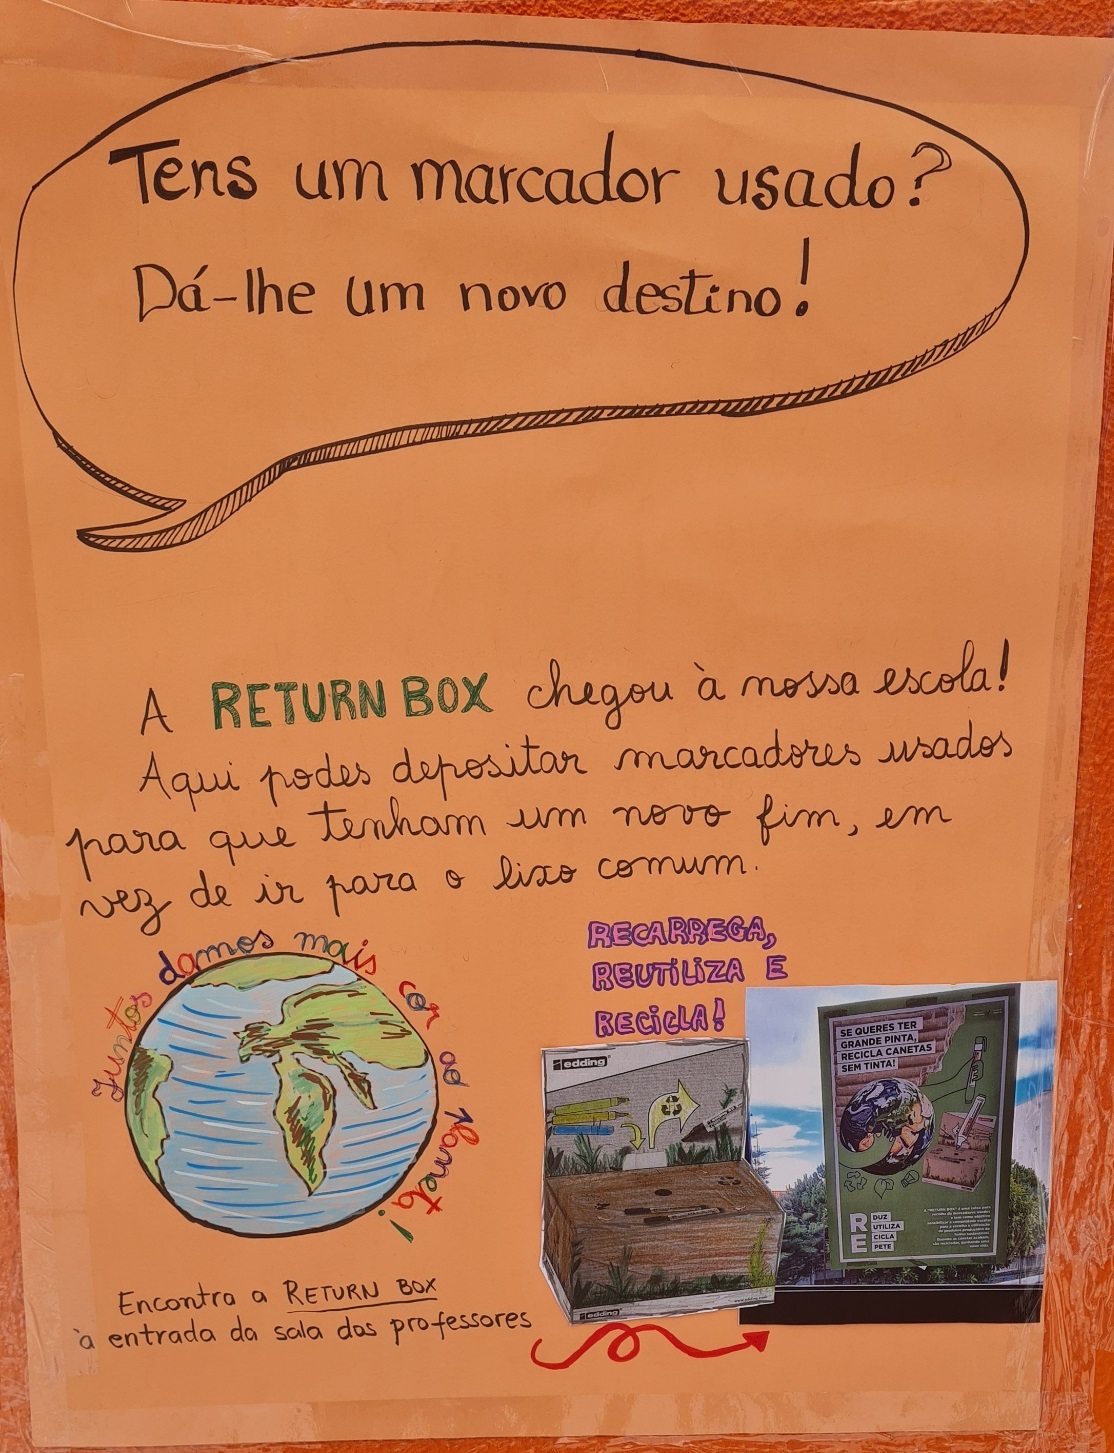 Tens um marcador usado?
Dá-lhe um novo destino!
A RETURN BOX chegou à nossa escola!
Aqui podes depositar marcadores usados
para que tenham um novo fim, em
vez de ir para o lixo comum.
Juntos damos mais cor ao Planeta!
RECARREGA,
REUTILIZA E
RECICLA!
edding
edding
SE QUERES TER
GRANDE PINTA,
RECICLA CANETAS
SEM TINTA!
RE
DUZ
UTILIZA
CICLA
PETE
Encontra a RETURN BOX
à entrada da sala dos professores